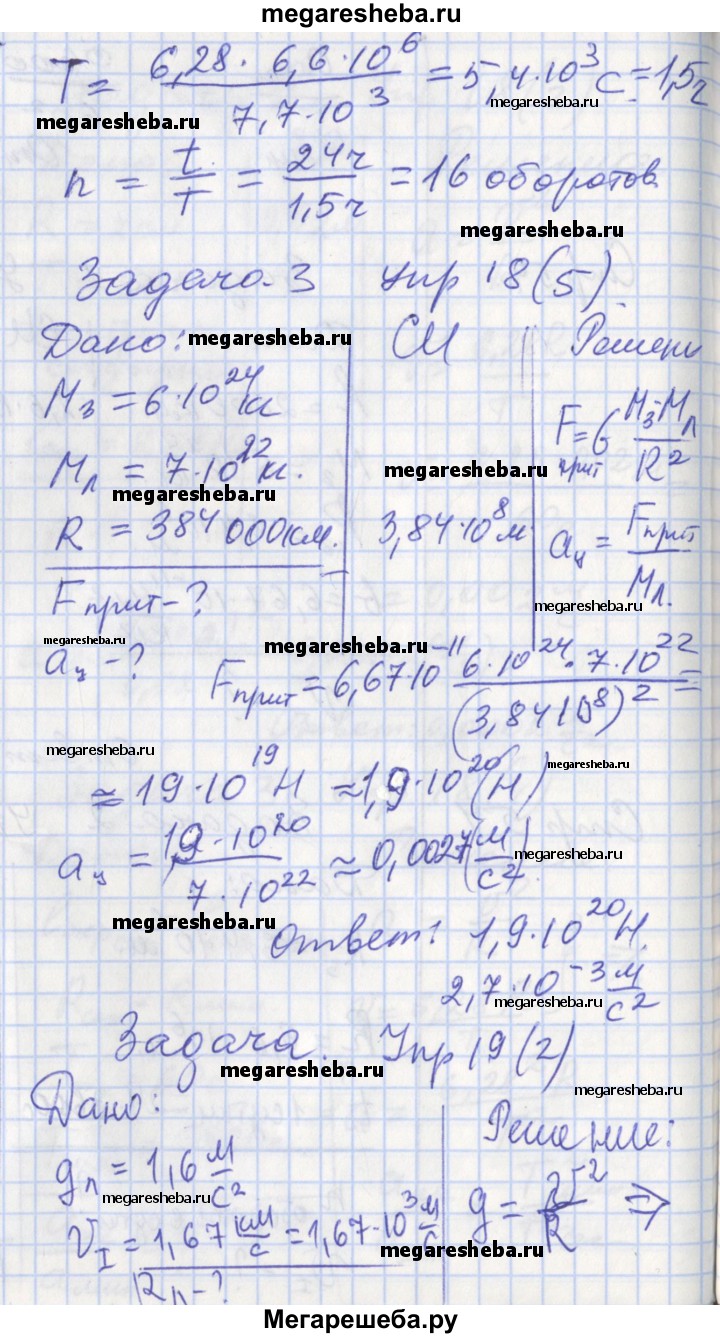 megaresheba.ru
T = 6,28 · 6,6 · 10⁶ / 7,7 · 10³ = 5,4 · 10³ с = 1,5 ч
megaresheba.ru
megaresheba.ru
n = t / T = 24 ч / 1,5 ч = 16 оборотов
megaresheba.ru
Задача 3 Упр 18(5).
Дано: СИ Решени
megaresheba.ru
M₃ = 6 · 10²⁴ кг
F прит = G M₃ · Mл / R²
Mл = 7 · 10²² кг.
megaresheba.ru
megaresheba.ru
R = 384 000 км. 3,84 · 10⁸ м aц = Fприт / Mл.
Fприт - ?
megaresheba.ru
megaresheba.ru
megaresheba.ru
aц - ?
Fприт = 6,67 · 10⁻¹¹ 6 · 10²⁴ · 7 · 10²² / (3,84 · 10⁸)² =
megaresheba.ru
megaresheba.ru
≈ 19 · 10¹⁹ Н ≈ 1,9 · 10²⁰ (Н)
aц = 1,9 · 10²⁰ / 7 · 10²² ≈ 0,0027 (м/с²)
megaresheba.ru
megaresheba.ru
Ответ: 1,9 · 10²⁰ Н.
2,7 · 10⁻³ м/с²
megaresheba.ru
Задача. Упр 19(2)
megaresheba.ru
megaresheba.ru
Дано: Решение:
gл = 1,6 м/с²
megaresheba.ru
V_I = 1,67 км/с = 1,67 · 10³ м/с g = v² / R ⇒
megaresheba.ru
Rл - ?
Мегарешеба.ру